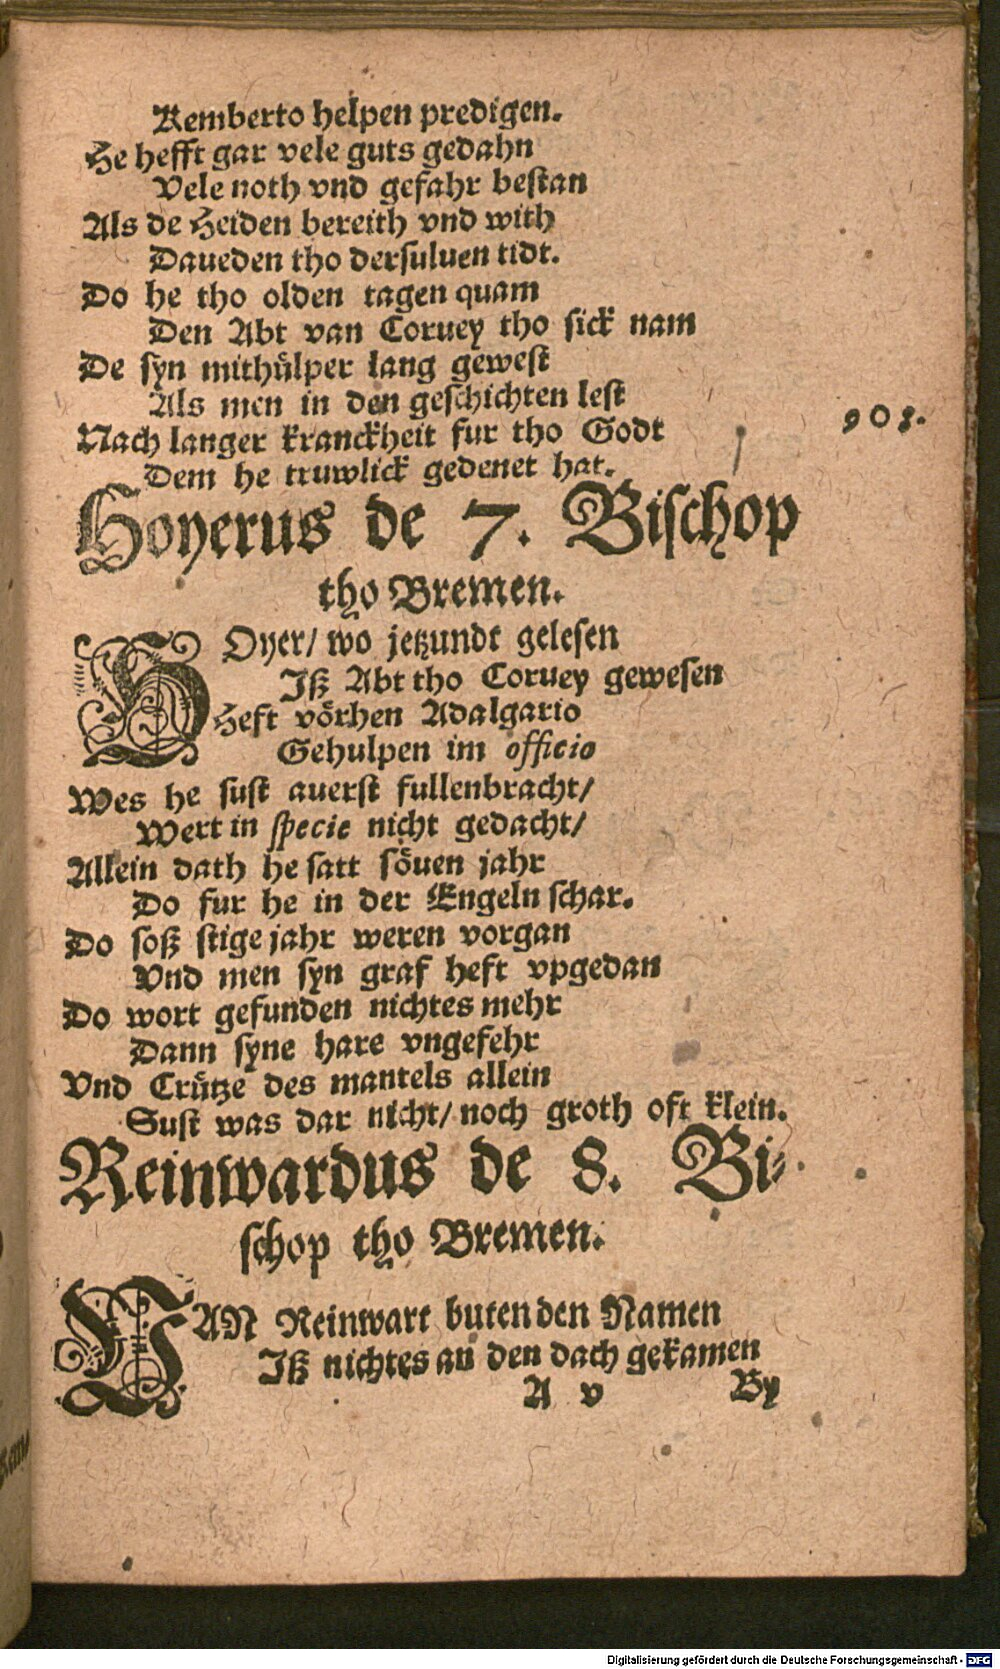 Remberto helpen predigen.
He hefft gar vele guts gedahn
Vele noth vnd gefahr bestan
Als de Heiden bereith vnd with
Daueden tho dersuluen tidt.
Do he tho olden tagen quam
Den Abt van Coruey tho sick nam
De syn mithülper lang gewest
Als men in den geschichten lest
Nach langer kranckheit fur tho Godt
908.
Dem he truwlick gedenet hat.
Hoyerus de 7. Bischop
tho Bremen.
HOyer/ wo jetzundt gelesen
Jß Abt tho Coruey gewesen
Heft vörhen Adalgario
Gehulpen im officio
Wes he sust auerst fullenbracht/
Wert in specie nicht gedacht/
Allein dath he satt söuen jahr
Do fur he in der Engeln schar.
Do soß stige jahr weren vorgan
Vnd men syn graf heft vpgedan
Do wort gefunden nichtes mehr
Dann syne hare vngefehr
Vnd Crütze des mantels allein
Sust was dar nicht/ noch groth oft klein.
Reinwardus de 8. Bi-
schop tho Bremen.
VAN Reinwart buten den Namen
Jß nichtes an den dach gekamen
A v
By
Digitalisierung gefördert durch die Deutsche Forschungsgemeinschaft - DFG